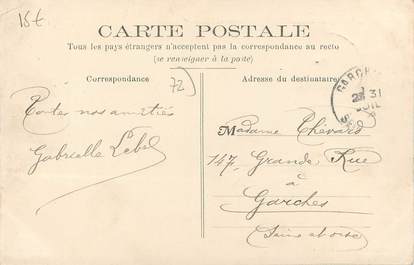 15€
CARTE POSTALE
Tous les pays étrangers n'acceptent pas la correspondance au recto
(se renseigner à la poste)
Correspondance
72
Adresse du destinataire
Toutes nos amitiés
Gabrielle Lebel
GARCH
31
Madame Thévard
147 Grande Rue
à
Garches
Seine et Oise